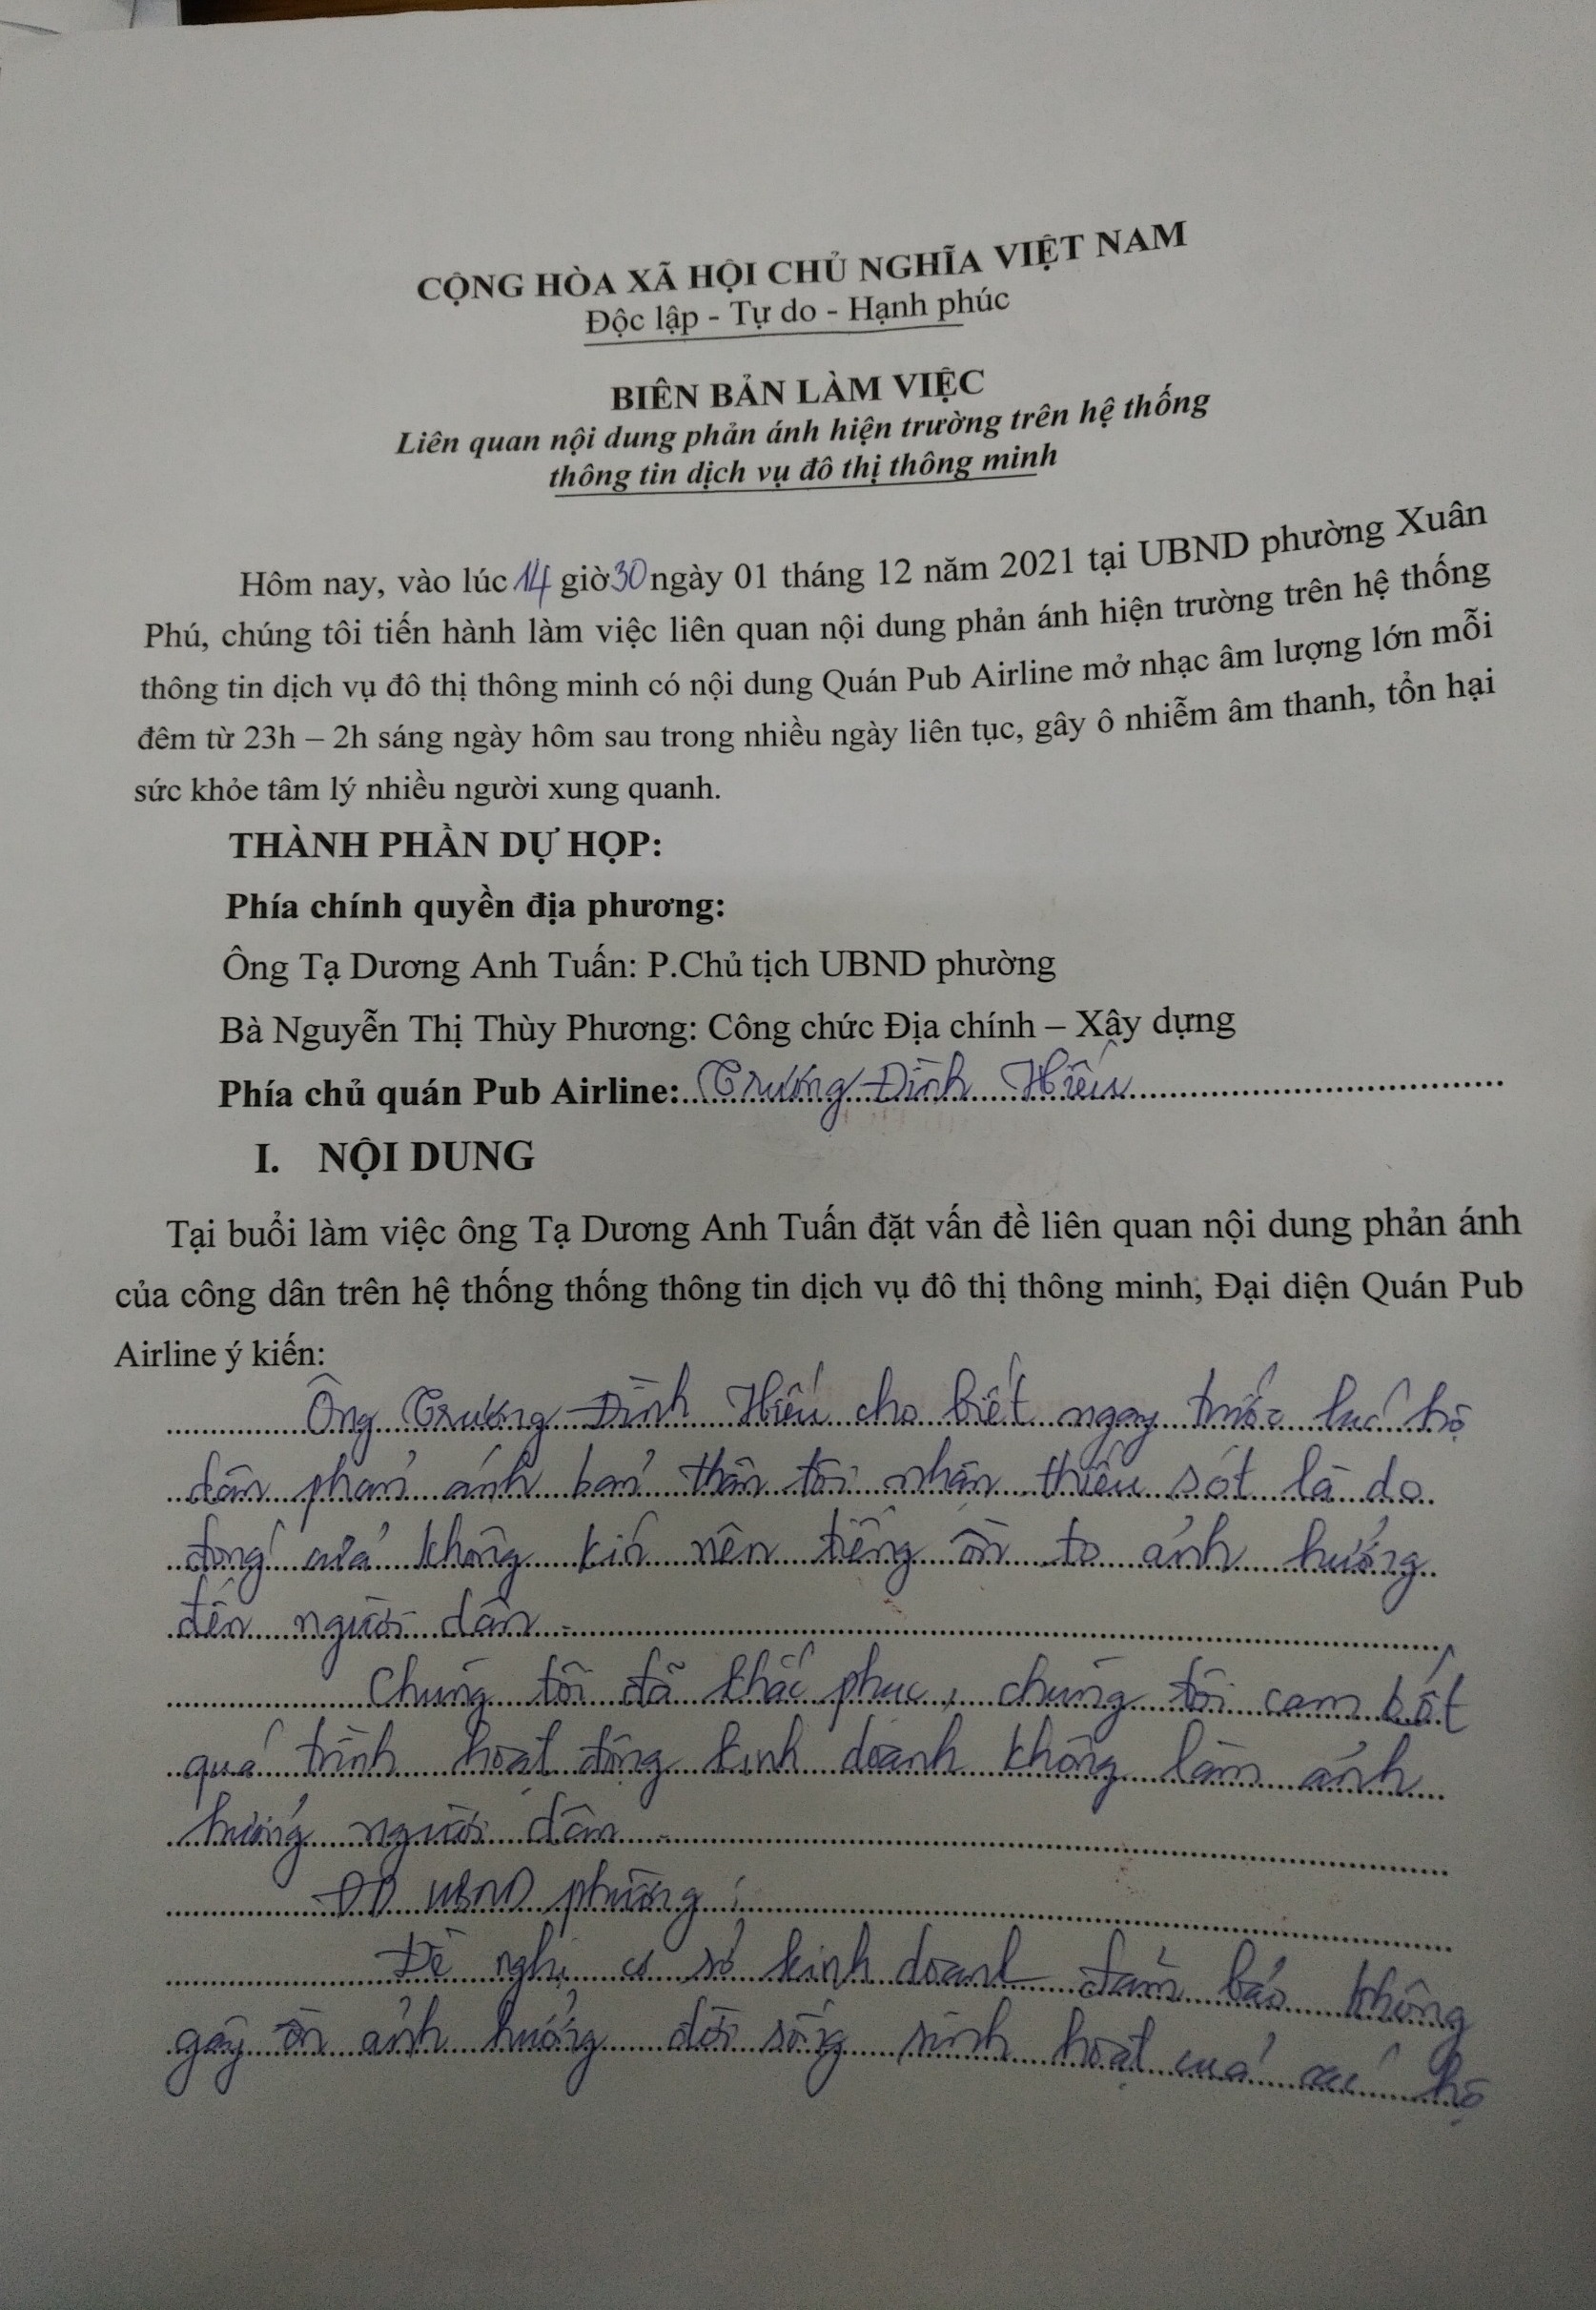 CỘNG HÒA XÃ HỘI CHỦ NGHĨA VIỆT NAM
Độc lập - Tự do - Hạnh phúc
BIÊN BẢN LÀM VIỆC
Liên quan nội dung phản ánh hiện trường trên hệ thống
thông tin dịch vụ đô thị thông minh
Hôm nay, vào lúc 14 giờ 30 ngày 01 tháng 12 năm 2021 tại UBND phường Xuân
Phú, chúng tôi tiến hành làm việc liên quan nội dung phản ánh hiện trường trên hệ thống
thông tin dịch vụ đô thị thông minh có nội dung Quán Pub Airline mở nhạc âm lượng lớn mỗi
đêm từ 23h – 2h sáng ngày hôm sau trong nhiều ngày liên tục, gây ô nhiễm âm thanh, tổn hại
sức khỏe tâm lý nhiều người xung quanh.
THÀNH PHẦN DỰ HỌP:
Phía chính quyền địa phương:
Ông Tạ Dương Anh Tuấn: P.Chủ tịch UBND phường
Bà Nguyễn Thị Thùy Phương: Công chức Địa chính – Xây dựng
Phía chủ quán Pub Airline: Trương Đình Hiếu
I. NỘI DUNG
Tại buổi làm việc ông Tạ Dương Anh Tuấn đặt vấn đề liên quan nội dung phản ánh
của công dân trên hệ thống thống thông tin dịch vụ đô thị thông minh, Đại diện Quán Pub
Airline ý kiến:
Ông Trương Đình Hiếu cho biết ngay trước lúc hộ
dân phản ánh bản thân tôi nhận thiếu sót là do
đóng cửa không kín nên tiếng ồn to ảnh hưởng
đến người dân.
Chúng tôi đã khắc phục, chúng tôi cam kết
quá trình hoạt động kinh doanh không làm ảnh
hưởng người dân.
ĐD UBND phường:
Đề nghị cơ sở kinh doanh đảm bảo không
gây ồn ảnh hưởng đời sống sinh hoạt của các hộ